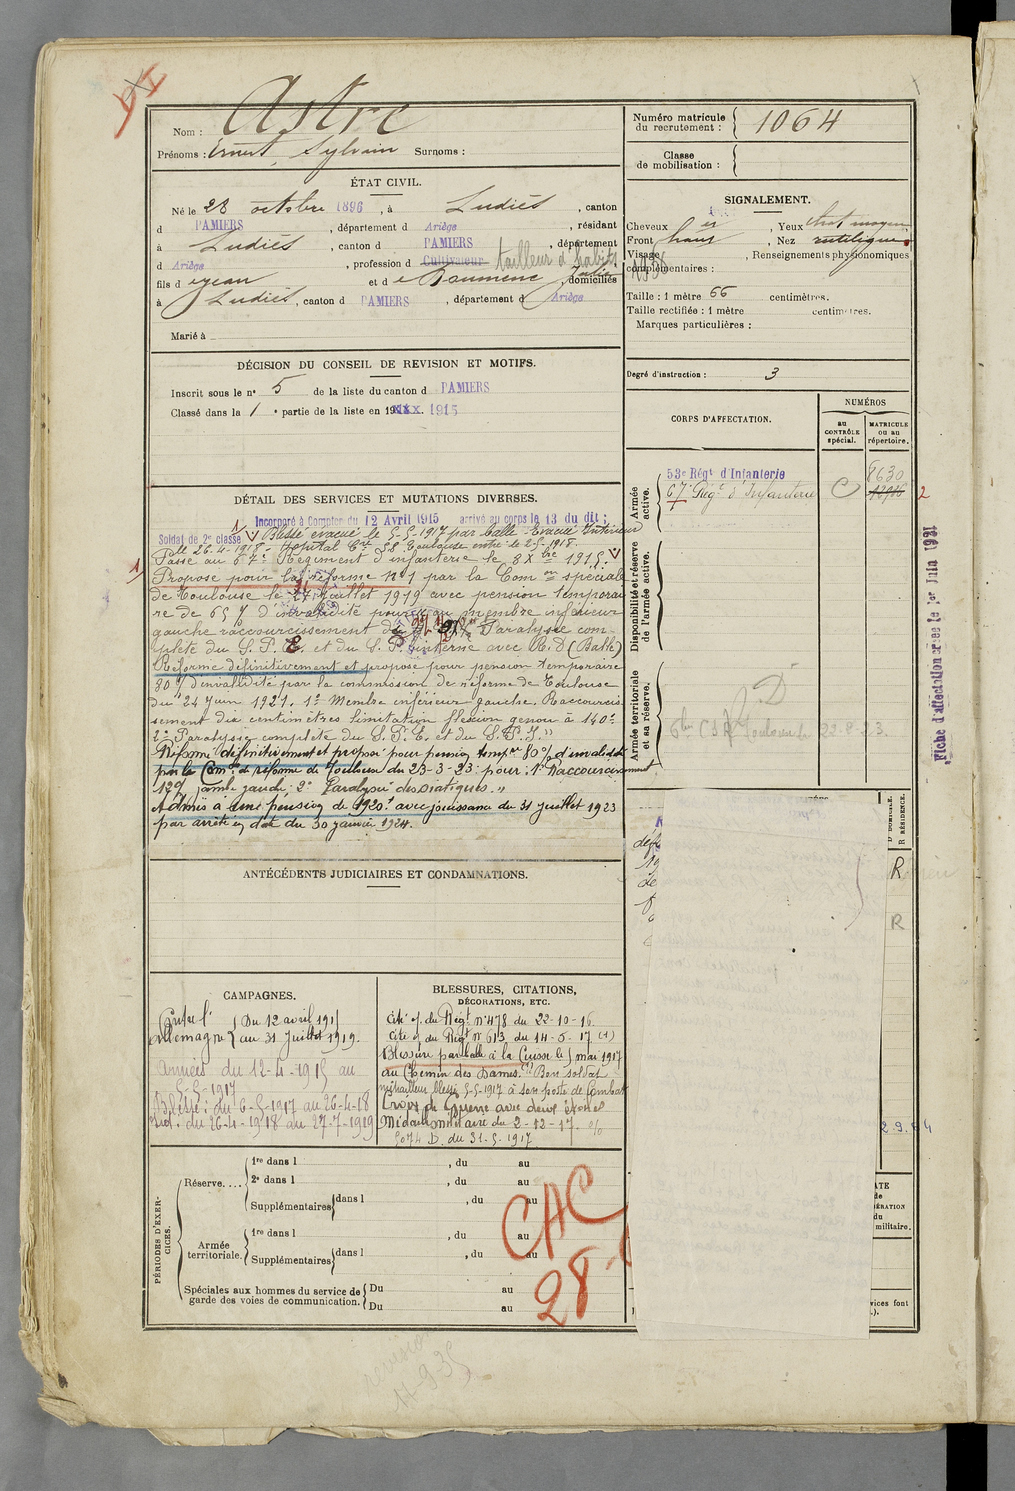 Nom : Astre
Prénoms : Ernest, Sylvain Surnoms :
Numéro matricule du recrutement : 1064
Classe de mobilisation :
ÉTAT CIVIL.
Né le 28 octobre 1896, à Ludiès, canton
d PAMIERS, département d Ariège, résidant
à Ludiès, canton d PAMIERS, département
d Ariège, profession d Cultivateur tailleur d'habits
fils d e Jean et d e Baumenc Julie, domiciliés
à Ludiès, canton d PAMIERS, département d Ariège
Marié à
SIGNALEMENT.
Cheveux, Yeux
Front haut, Nez rectiligne
Visage, Renseignements physionomiques
complémentaires :
Taille : 1 mètre 66 centimètres.
Taille rectifiée : 1 mètre centimètres.
Marques particulières :
Degré d'instruction : 3
DÉCISION DU CONSEIL DE REVISION ET MOTIFS.
Inscrit sous le n° 5 de la liste du canton d PAMIERS
Classé dans la 1e partie de la liste en 1915
CORPS D'AFFECTATION.
NUMÉROS
au CONTRÔLE spécial.
MATRICULE ou au répertoire.
Armée active.
53e Régt d'Infanterie
67e Régt d'Infanterie
8630
2
Disponibilité et réserve de l'armée active.
Armée territoriale et sa réserve.
Toulouse 22-8-23.
Fiche d'affectation créée le 1er Juin 1931
DÉTAIL DES SERVICES ET MUTATIONS DIVERSES.
Incorporé à Compter du 12 Avril 1915 arrivé au corps le 13 du dit ;
Soldat de 2e classe Blessé évacué le 5-5-1917 par balle - Evacué Intérieur
le 26-4-1918 - Hopital Toulouse entré le 2-5-1918.
Passé au 67e Régiment d'infanterie le 8 Xbre 1915.
Proposé pour la réforme n° 1 par la Comon spéciale
de Toulouse le Juillet 1919 avec pension temporai
re de 65 % d'invalidité pour au membre inférieur
gauche raccourcissement de Paralysie com-
plète du S.P.E. et du S.P. interne avec R.D (Balle)
Réformé définitivement et proposé pour pension temporaire
80 % d'invalidité par la commission de réforme de Toulouse
du 24 Juin 1921. 1° Membre inférieur gauche, Raccourcis
sement dix centimètres limitation flexion genou à 140°
2° Paralysie complète du S.P.E. et du S.P.I."
Réformé définitivement et proposé pour pension tempre 80 % d'invalidité
par la Comon de réforme de Toulouse du 23-3-23 pour : 1° Raccourcissement
jambe gauche ; 2° Paralysie des sciatiques."
Admis à une pension de 1920f avec jouissance du 31 juillet 1923
par arrêté en date du 30 janvier 1924.
ANTÉCÉDENTS JUDICIAIRES ET CONDAMNATIONS.
D DOMICILE.
R RÉSIDENCE.
R
R
CAMPAGNES.
Contre l' Du 12 avril 191
Allemagne au 31 Juillet 1919.
Armées du 12-4-1915 au
5-5-1917
Blessé : du 6-5-1917 au 26-4-18
Int. : du 26-4-1918 au 27-7-1919
BLESSURES, CITATIONS,
DÉCORATIONS, ETC.
Cité O. du Régt N° 478 du 22-10-16
Cité O. du Régt N° 613 du 14-5-17 (1)
Blessure par balle à la Cuisse le 5 mai 1917
au Chemin des Dames. (1) Bon soldat
mitrailleur blessé 5-5-1917 à son poste de Combat
Croix de Guerre avec deux étoiles
Médaille militaire du 2-12-17. %
5074 D. du 31-5-1917
PÉRIODES D'EXERCICES.
Réserve....
1re dans l, du au
2e dans l, du au
Supplémentaires dans l, du au
Armée territoriale.
1re dans l, du au
Supplémentaires dans l, du au
Spéciales aux hommes du service de garde des voies de communication.
Du au
Du au
CAC
28